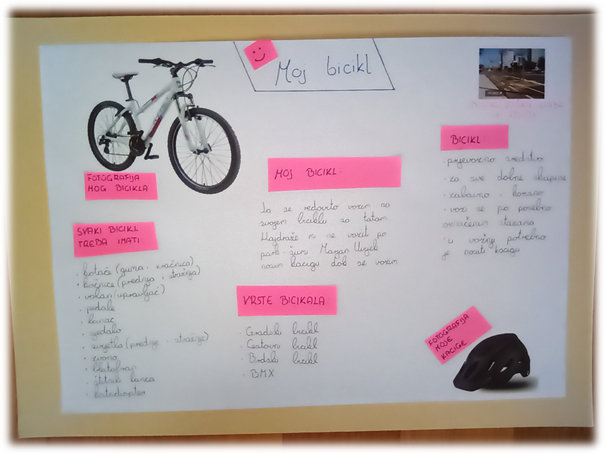 Moj bicikl
FOTOGRAFIJA
MOG BICIKLA
SVAKI BICIKL
TREBA IMATI
· kotače (guma, zračnica)
· kočnice (prednja i stražnja)
· volan (upravljač)
· pedale
· lanac
· sjedalo
· svjetla (prednje i stražnje)
· zvono
· blatobran
· štitnik lanca
MOJ BICIKL
Ja se redovito vozim na
svojem biciklu sa tatom
Najdraže mi se voziti po
nosim kacigu dok se vozim
VRSTE BICIKALA
· Gradski bicikl
· Cestovni bicikl
· Brdski bicikl
· BMX
BICIKL
· prijevozno sredstvo
· za sve dobne skupine
· zabavno i korisno
· vozi se po posebno
označenim stazama
· u vožnji potrebno
je nositi kacigu
FOTOGRAFIJA
MOJE
KACIGE